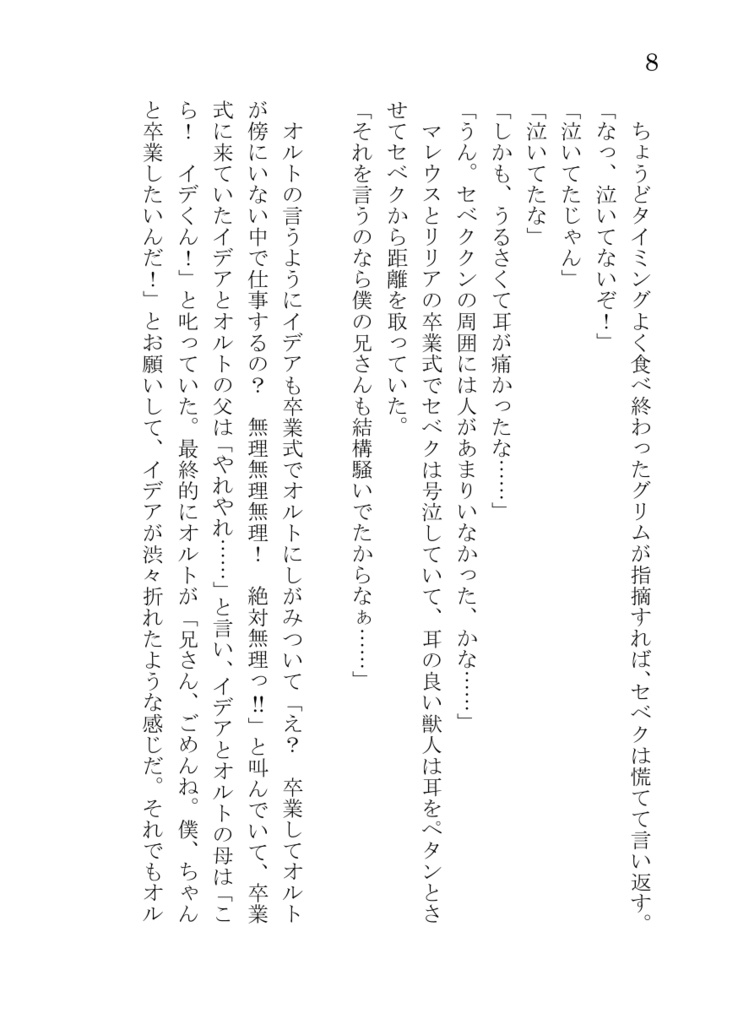 8
　ちょうどタイミングよく食べ終わったグリムが指摘すれば、セベクは慌てて言い返す。
「なっ、泣いてないぞ！」
「泣いてたじゃん」
「泣いてたな」
「しかも、うるさくて耳が痛かったな……」
「うん。セベククンの周囲には人があまりいなかった、かな……」
　マレウスとリリアの卒業式でセベクは号泣していて、耳の良い獣人は耳をペタンとさ
せてセベクから距離を取っていた。
「それを言うのなら僕の兄さんも結構騒いでたからなぁ……」
　オルトの言うようにイデアも卒業式でオルトにしがみついて「え？　卒業してオルト
が傍にいない中で仕事するの？　無理無理無理！　絶対無理っ‼」と叫んでいて、卒業
式に来ていたイデアとオルトの父は「やれやれ……」と言い、イデアとオルトの母は「こ
ら！　イデくん！」と叱っていた。最終的にオルトが「兄さん、ごめんね。僕、ちゃん
と卒業したいんだ！」とお願いして、イデアが渋々折れたような感じだ。それでもオル